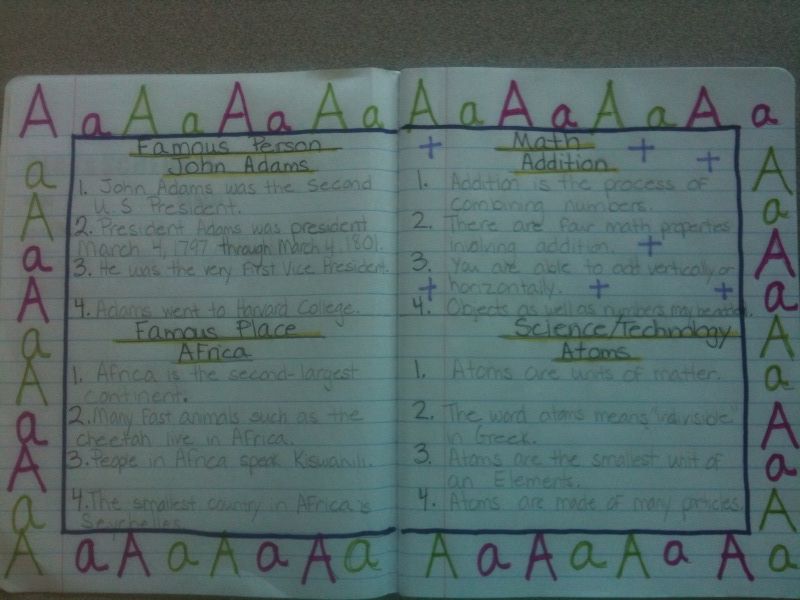 A a A a A a A a A a A a A a A a
Famous Person
John Adams
1. John Adams was the second
U.S President.
2. President Adams was president
March 4, 1797 through March 4, 1801.
3. He was the very first Vice President.
4. Adams went to Harvard College.
Famous Place
Africa
1. Africa is the second-largest
continent.
2. Many fast animals such as the
cheetah live in Africa.
3. People in Africa speak Kiswahili.
4. The smallest country in Africa is
Seychelles.
Math
Addition
1. Addition is the process of
combining numbers.
2. There are four math properties
involving addition.
3. You are able to add vertically or
horizontally.
4. Objects as well as numbers may be added.
Science/Technology
Atoms
1. Atoms are units of matter.
2. The word atoms means "indivisible"
in Greek.
3. Atoms are the smallest unit of
an Elements.
4. Atoms are made of many particles.
a
A
a
A
a
A
a
A
a
A
a
A
a
A
a
A
a
A
A a A a A a A a A a A a A a A a